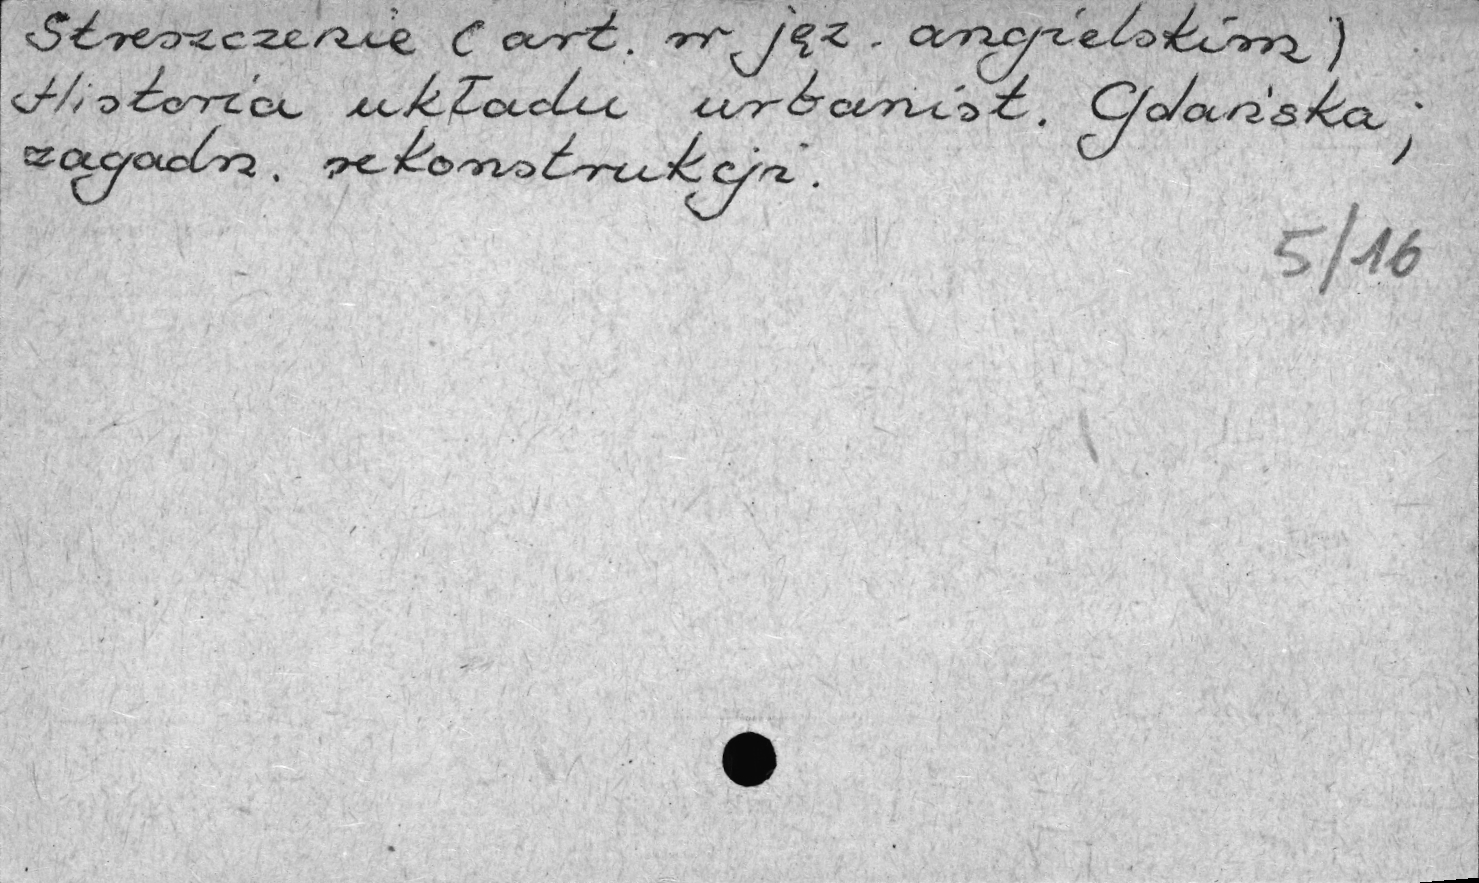 Streszczenie (art. w jęz. angielskim)
Historia układu urbanist. Gdańska;
zagadn. rekonstrukcji.
5/16